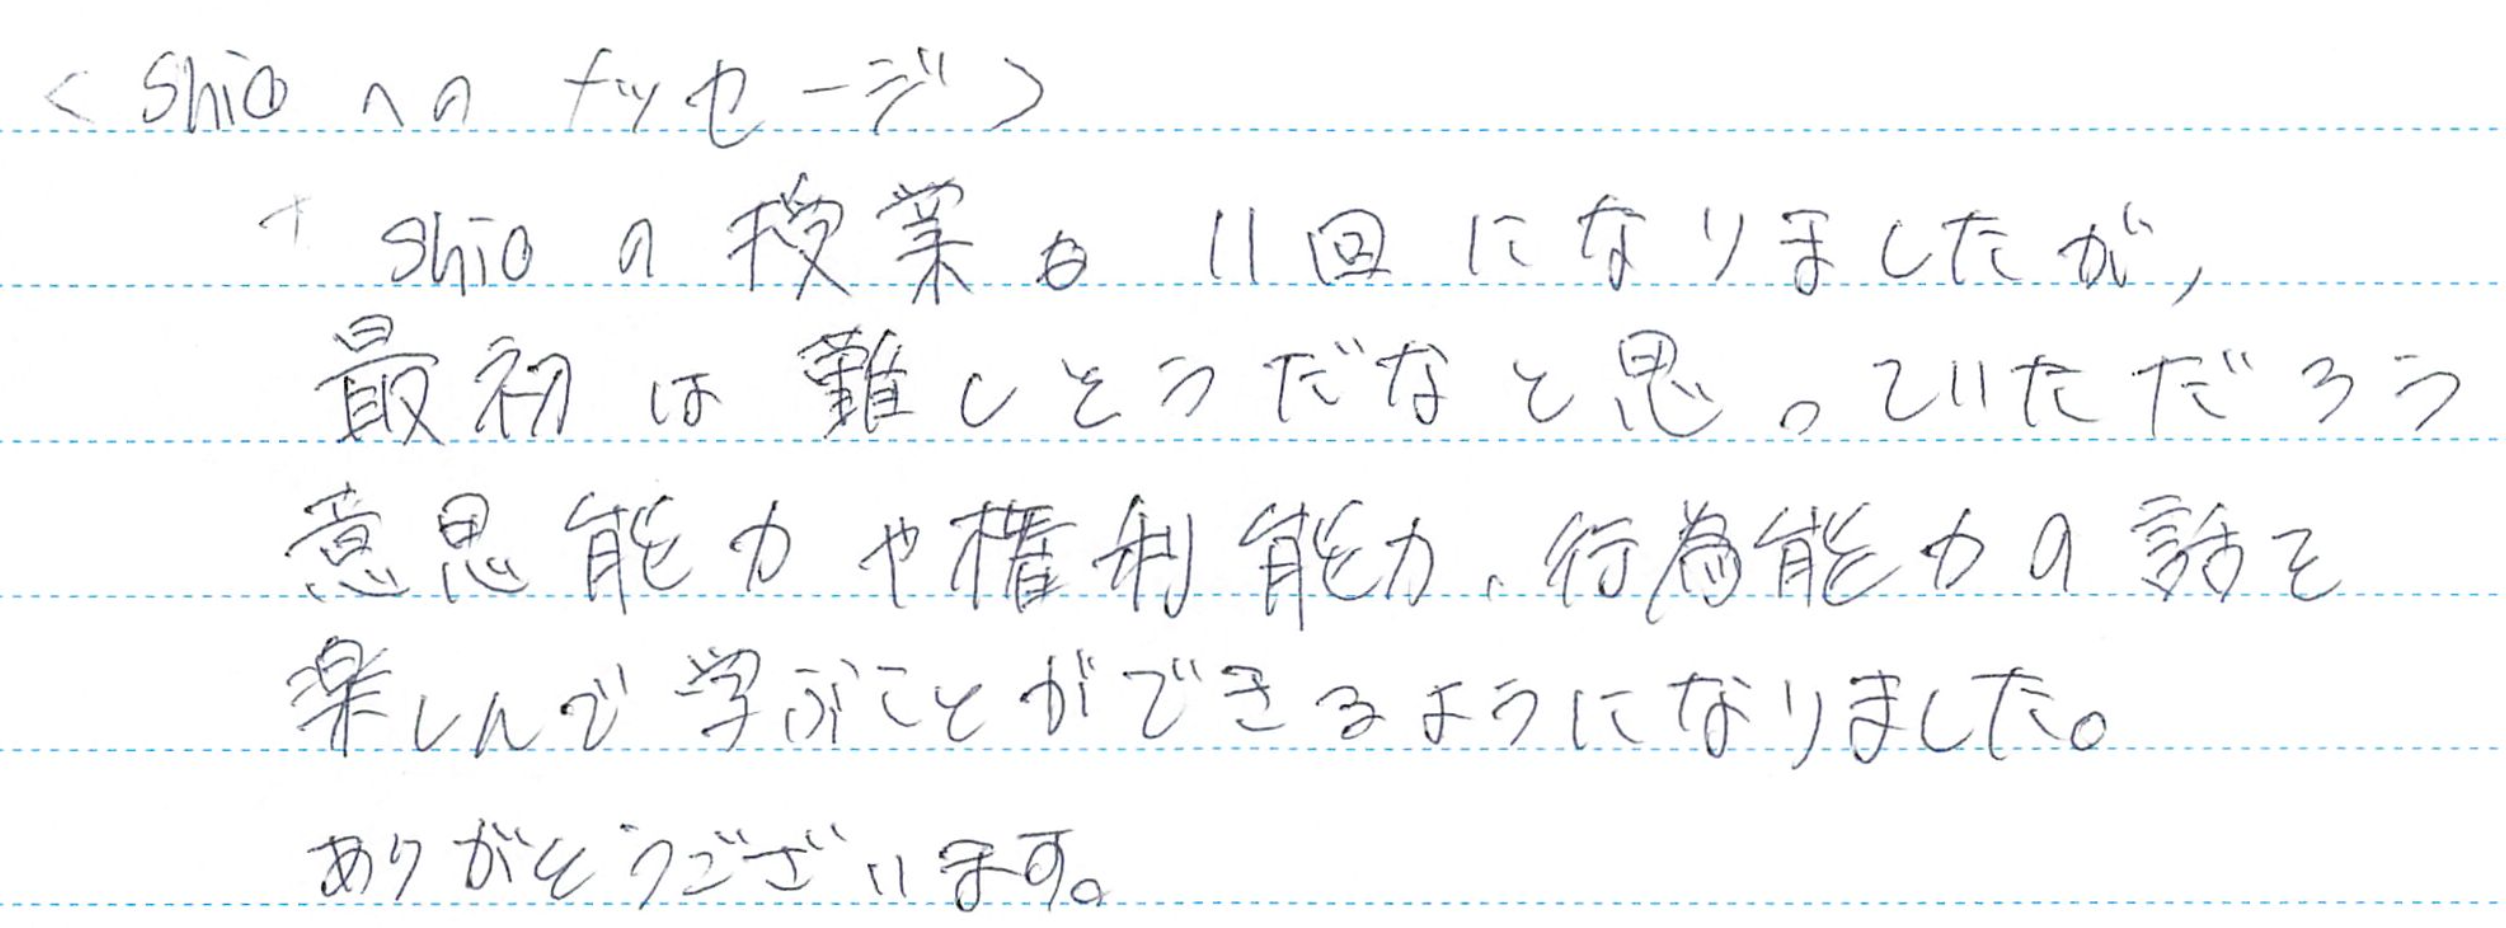 <shioへのメッセージ>
shioの授業も11回になりましたが,
最初は難しそうだなと思っていただろう
意思能力や権利能力、行為能力の話を
楽しんで学ぶことができるようになりました。
ありがとうございます。